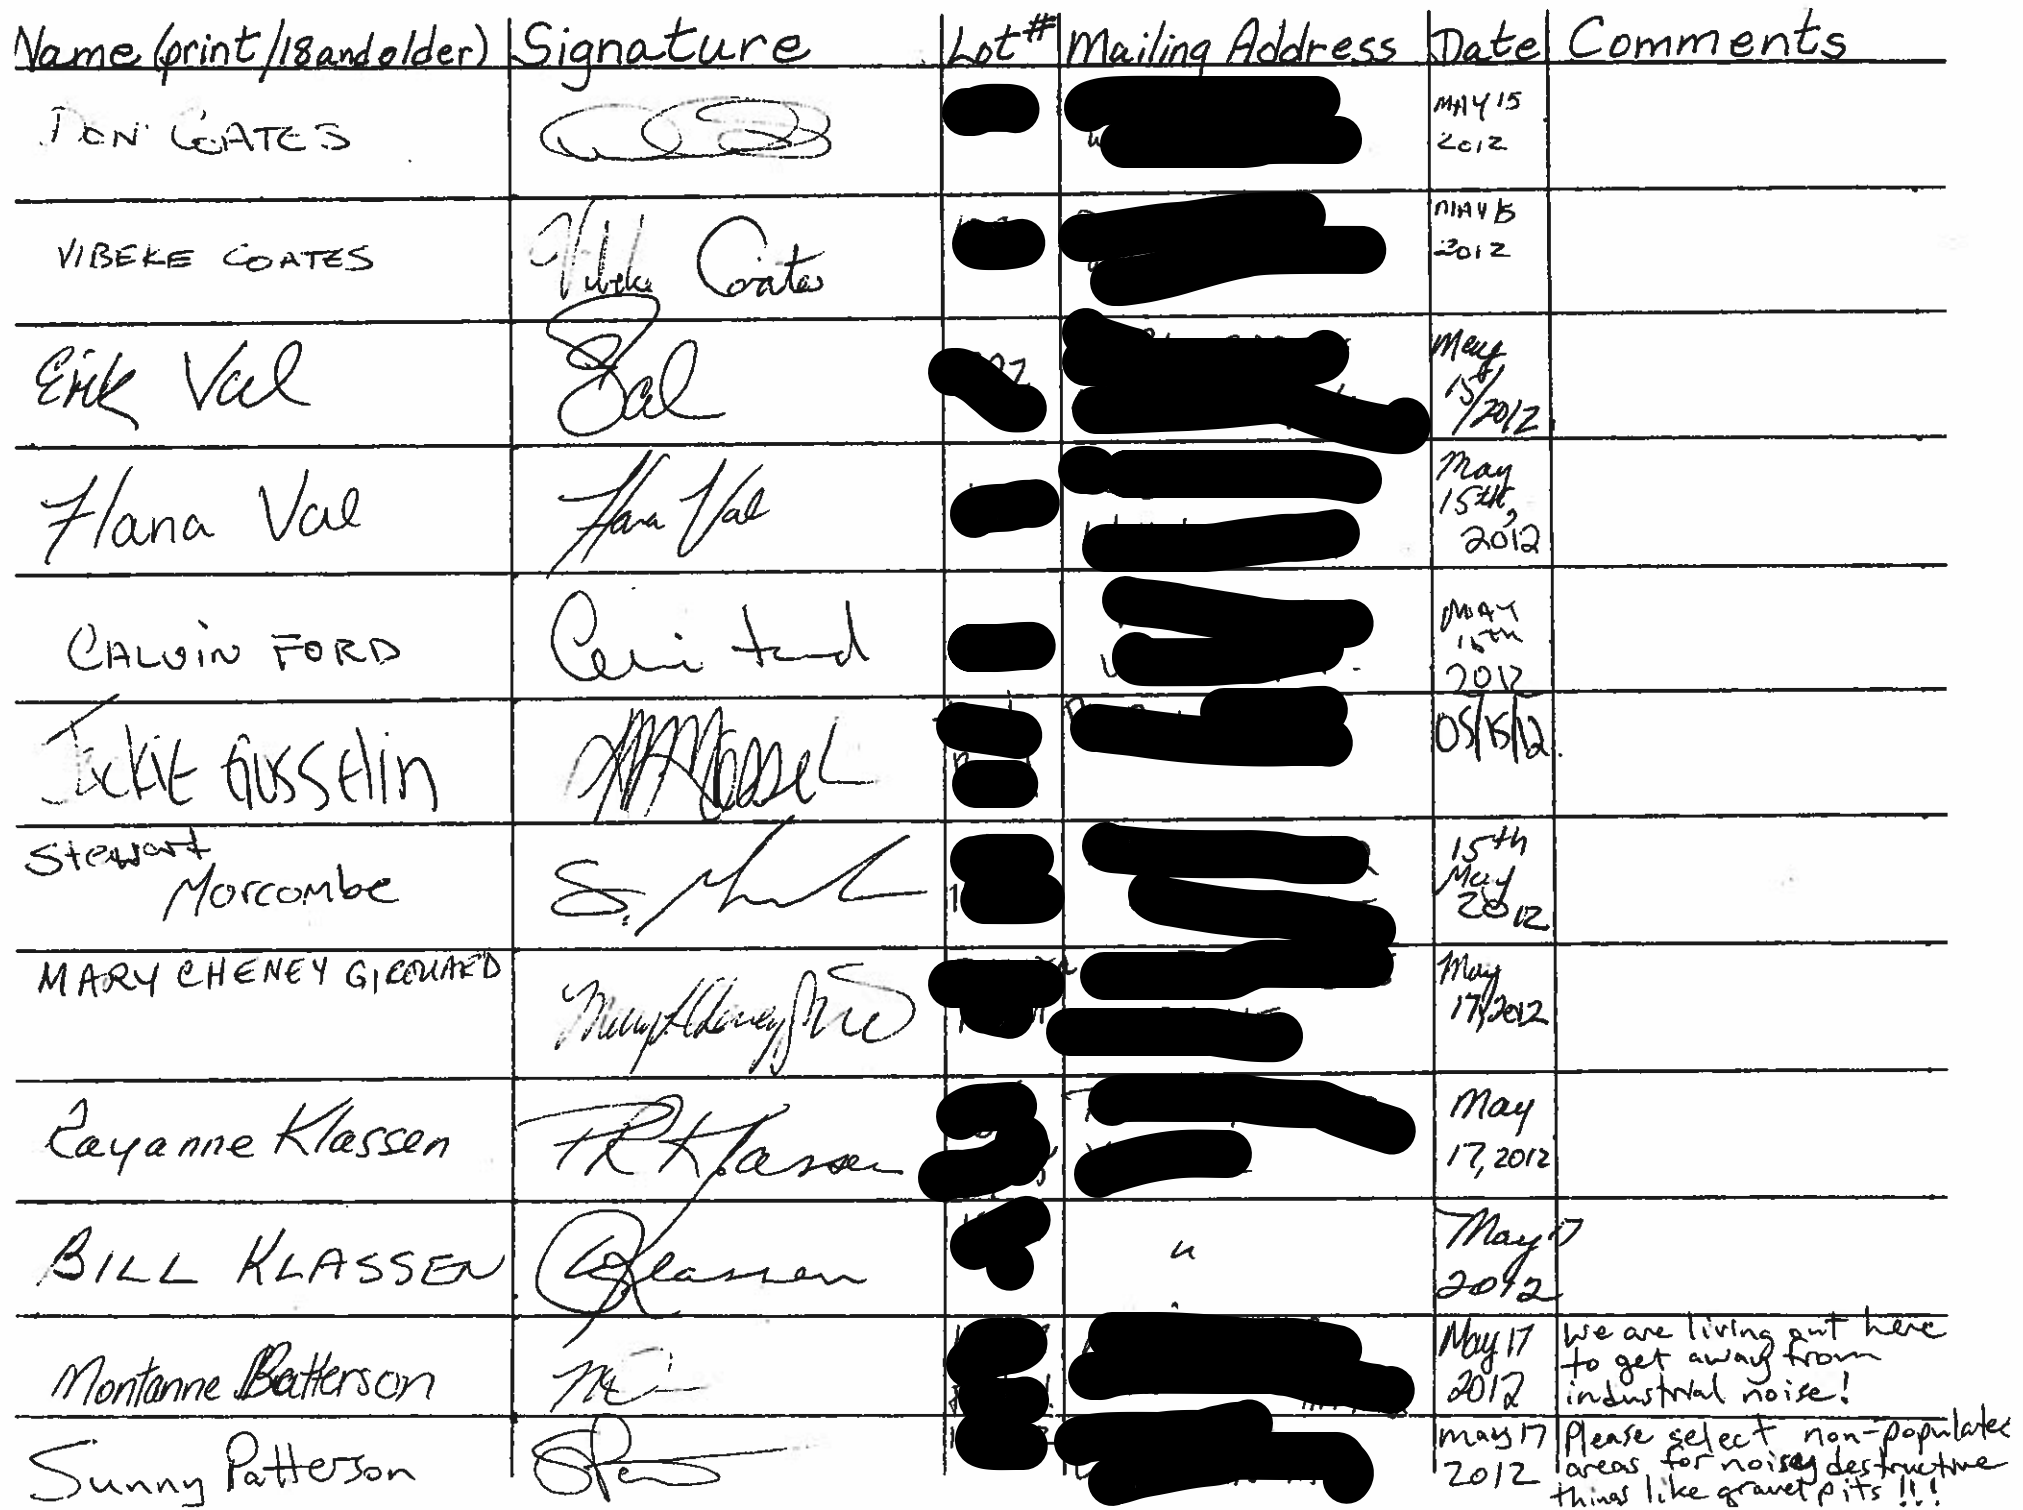 Name (print/18 and older) Signature Lot # Mailing Address Date Comments
DON COATES MAY 15
2012
VIBEKE COATES Vibeke Coates MAY 15
2012
Erik Val Val May
15th/
/2012
Hana Val Hana Val May
15th,
2012
CALVIN FORD MAY
15th
2012
Jackie Gosselin 05/15/12
Stewart
Morcombe S. 15th
May
2012
MARY CHENEY GIROUARD May
17, 2012
Rayanne Klassen R Klassen May
17, 2012
BILL KLASSEN Klassen " May 17
2012
Montanne Patterson May 17
2012
We are living out here
to get away from
industrial noise!
Sunny Patterson May 17
2012
Please select non-populated
areas for noisy destructive
things like gravel pits!!!